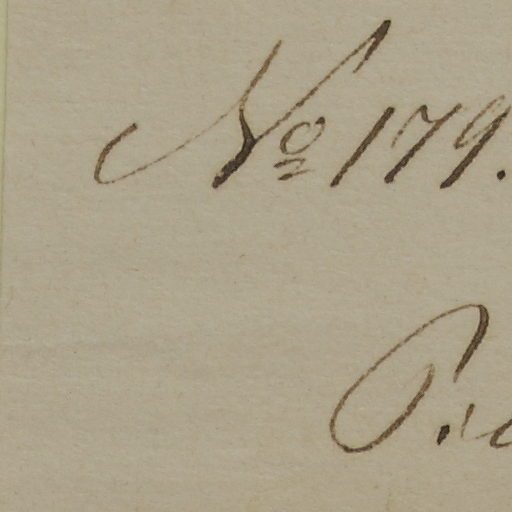 Nº 179.